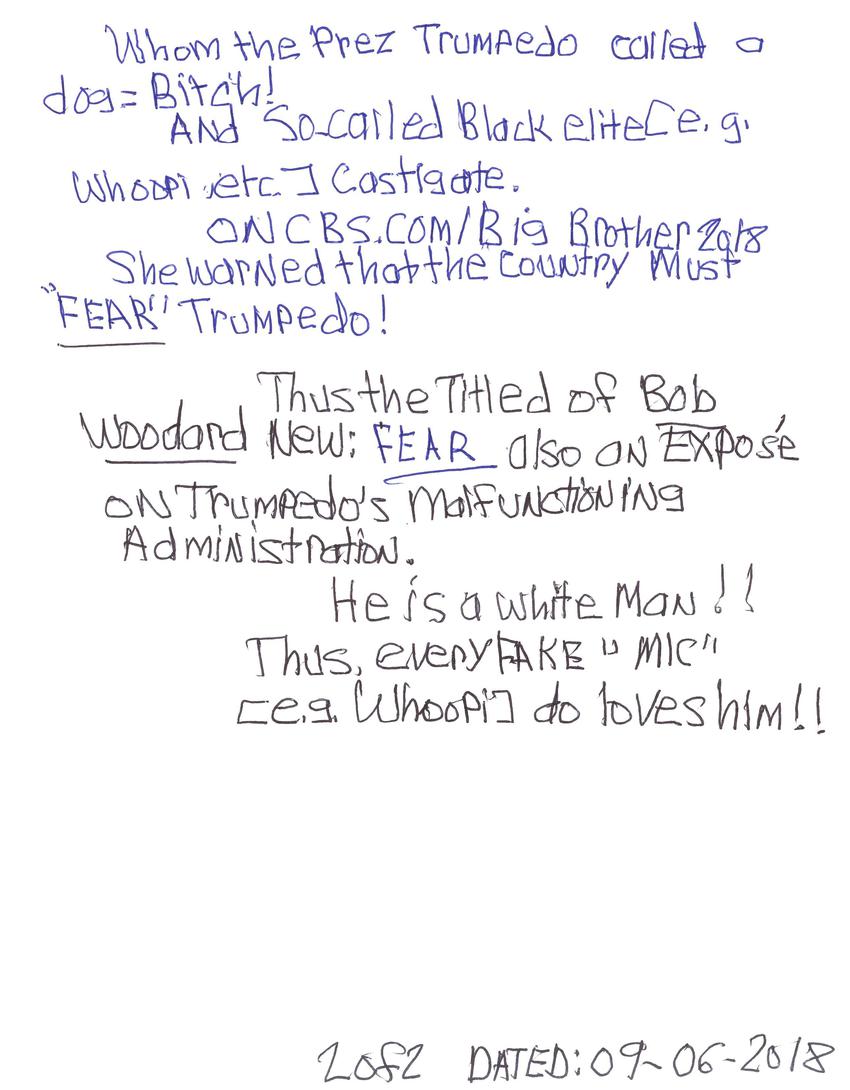 Whom the Prez Trumpedo called a
dog = Bitch!
AND So-called Black elite [e.g.
Whoopi etc.] Castigate.
ON CBS.COM/Big Brother 2018
She warned that the Country Must
"FEAR" Trumpedo!
Thus the Titled of Bob
Woodard New: FEAR also an EXPosé
ON Trumpedo's MalFUNctioNiNg
AdmiNistration.
He is a white MAN!!
Thus, every FAKE "MIC"
[e.g. Whoopi] do loves him!!
2 of 2 DATED: 09-06-2018